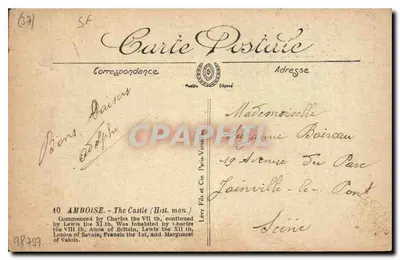 (37)
SF
Carte Postale
Correspondance
Adresse
Modèle Déposé
Bons Baisers
Adolphe
Mademoiselle
Suzanne Boireau
19 Avenue du Parc
Joinville-le-Pont
Seine
Lévy Fils et Cie Paris-Versa
10 AMBOISE. - The Castle (Hist. mon.)
Commenced by Charles the VII th, continued
by Lewis the XI th. Was inhabited by Charles
the VIII th, Anna of Britain, Lewis the XII th,
Louisa of Savoie, Francis the 1st, and Marguaret
of Valois.
98759